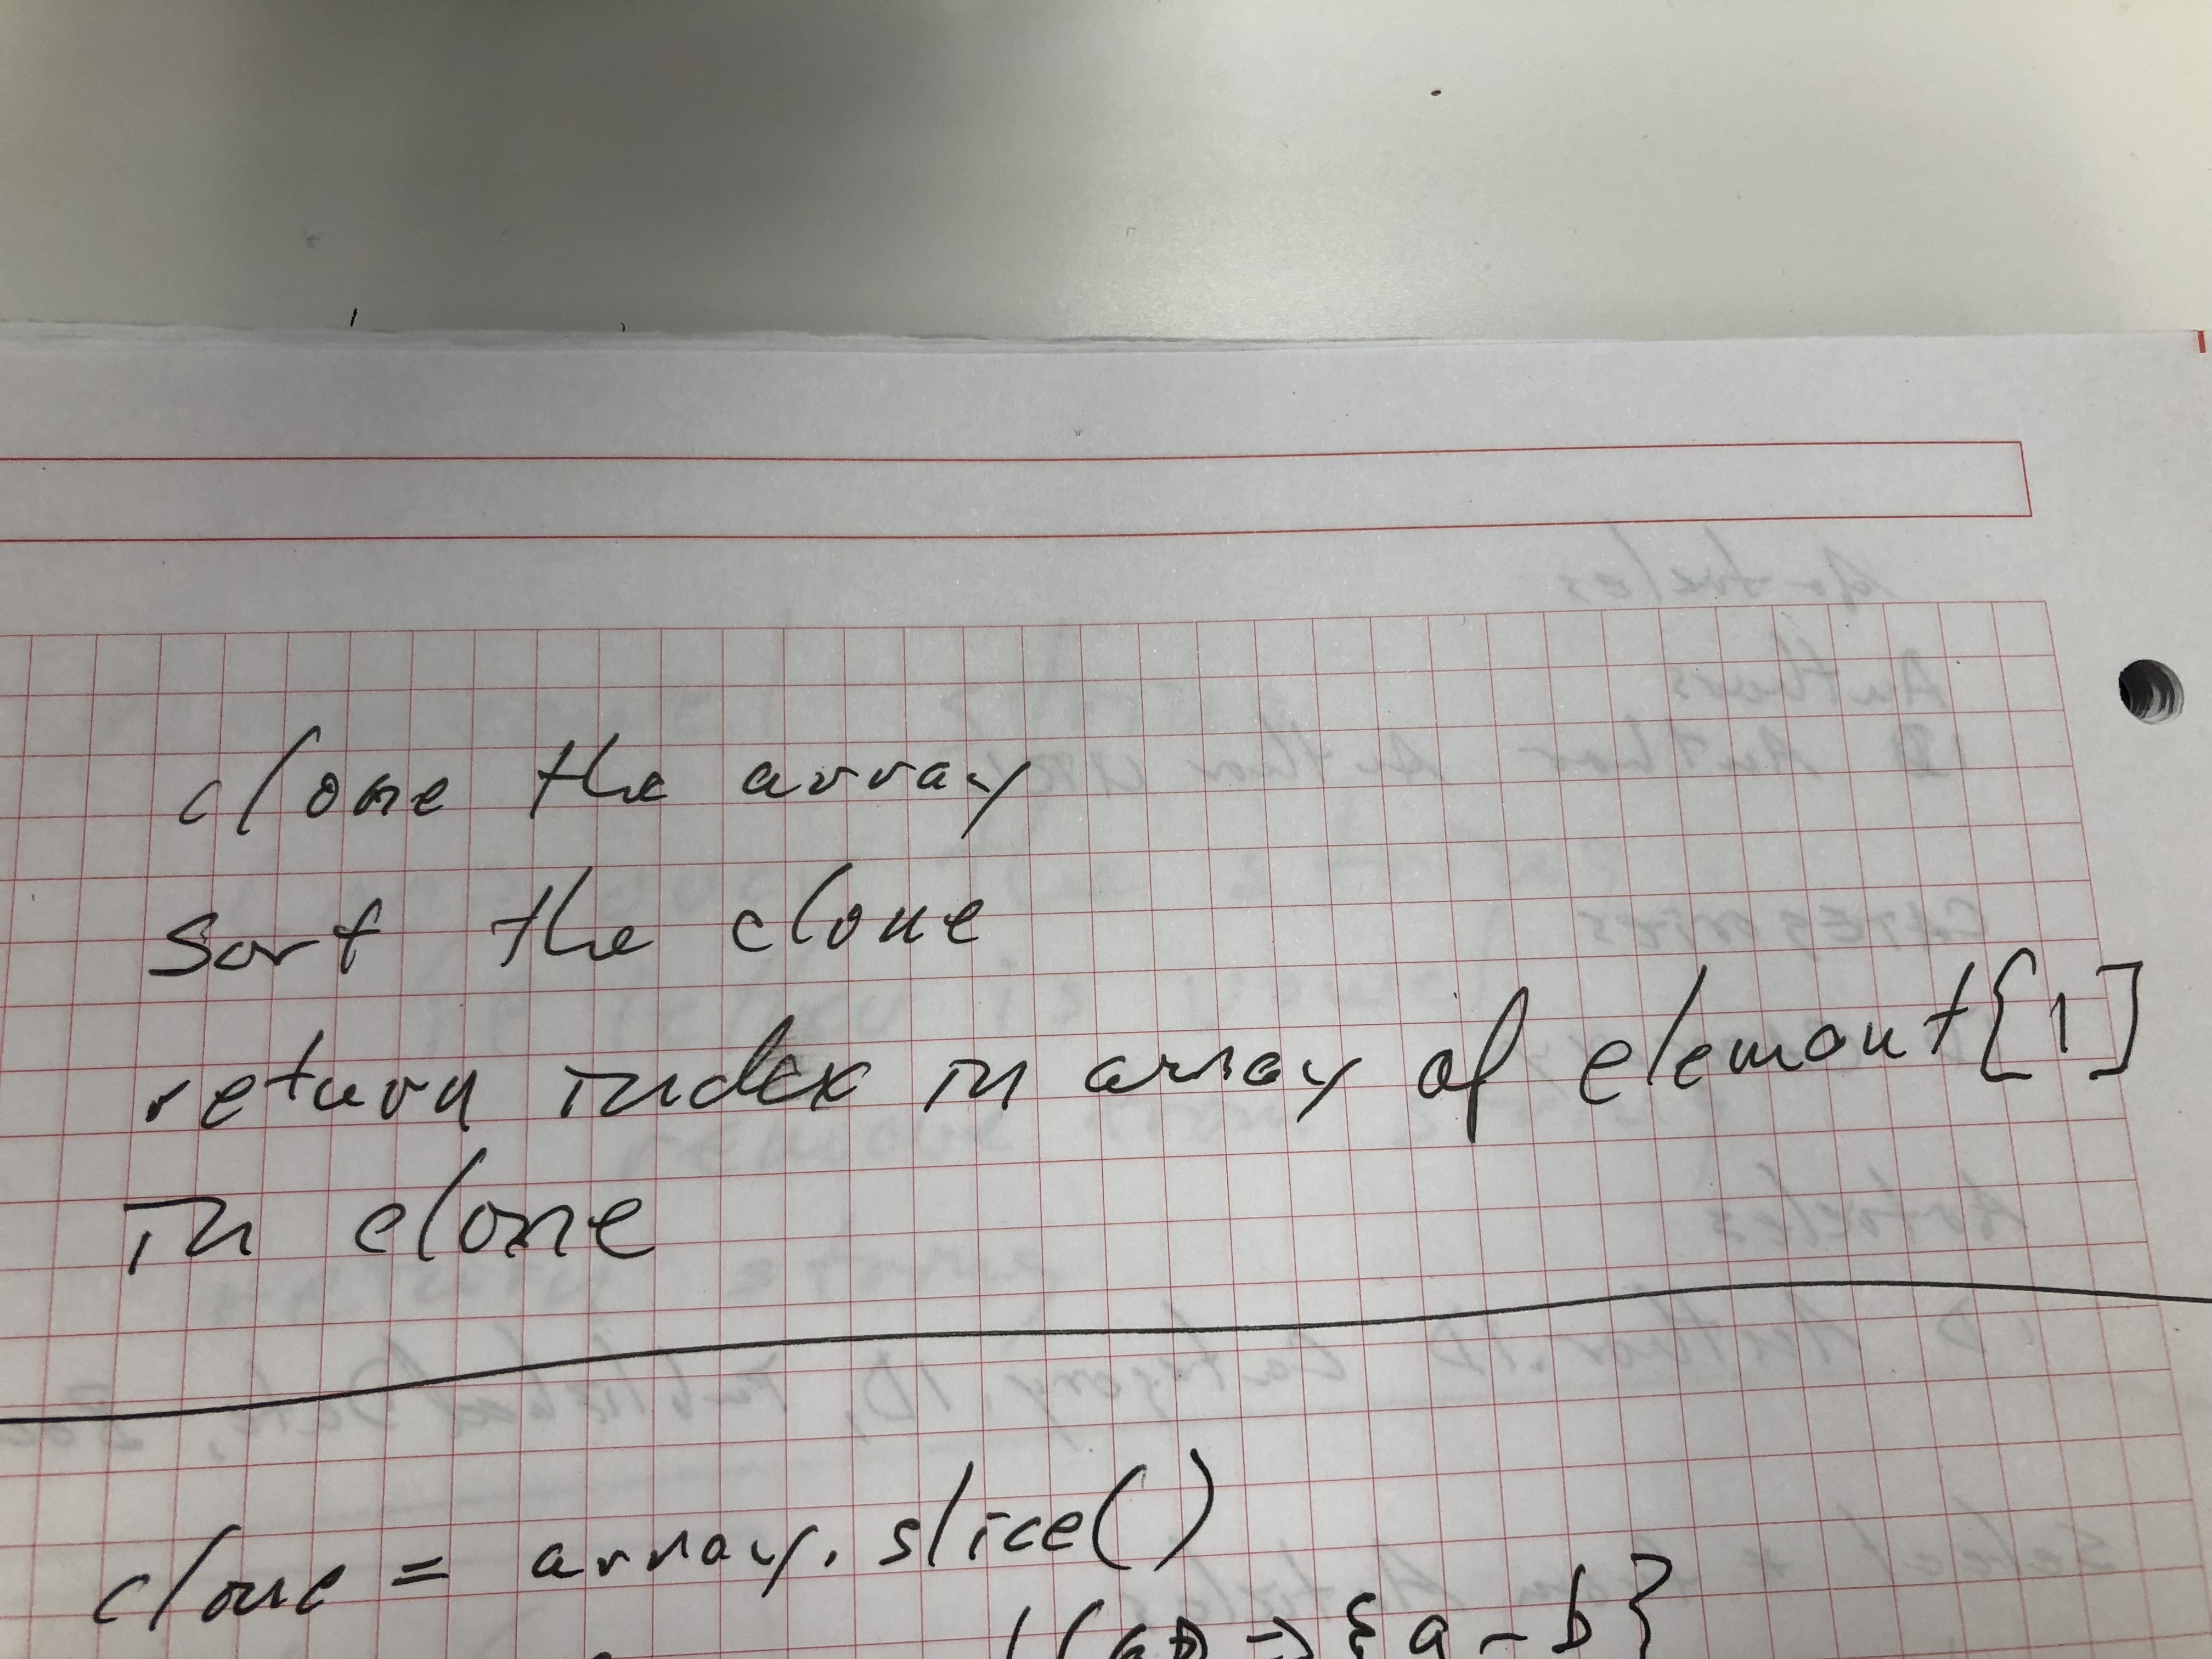 clone the array
sort the clone
return index in array of element[1]
in clone
clone = array.slice()
=> {a-b}